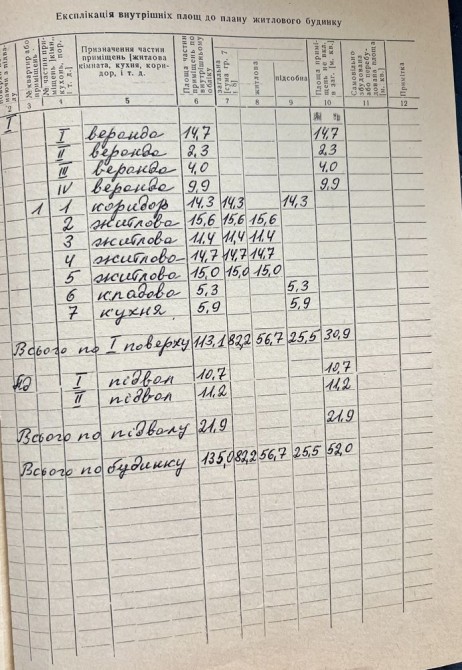 Експлікація внутрішніх площ до плану житлового будинку
№ квартир або приміщень
Призначення частин приміщень [житлова кімната, кухня, коридор, і т. д.
Площа частин приміщень по внутрішньому обліку
загальна [сума гр. 7 і 8]
житлова
підсобна
Самовільно збудована або перебудована площа [м. кв.]
Примітка
2 3 4 5 6 7 8 9 10 11 12
I
I веранда 14,7 14,7
II веранда 2,3 2,3
III веранда 4,0 4,0
IV веранда 9,9 9,9
1 1 коридор 14,3 14,3 14,3
2 житлова 15,6 15,6 15,6
3 житлова 11,4 11,4 11.4
4 житлова 14,7 14,7 14,7
5 житлова 15,0 15,0 15,0
6 кладова 5,3 5,3
7 кухня 5,9 5,9
Всього по I поверху 113,1 82,2 56,7 25,5 30,9
пд I підвал 10,7 10,7
II підвал 11,2 11,2
Всього по підвалу 21,9 21,9
Всього по будинку 135,0 82,2 56,7 25,5 52,0